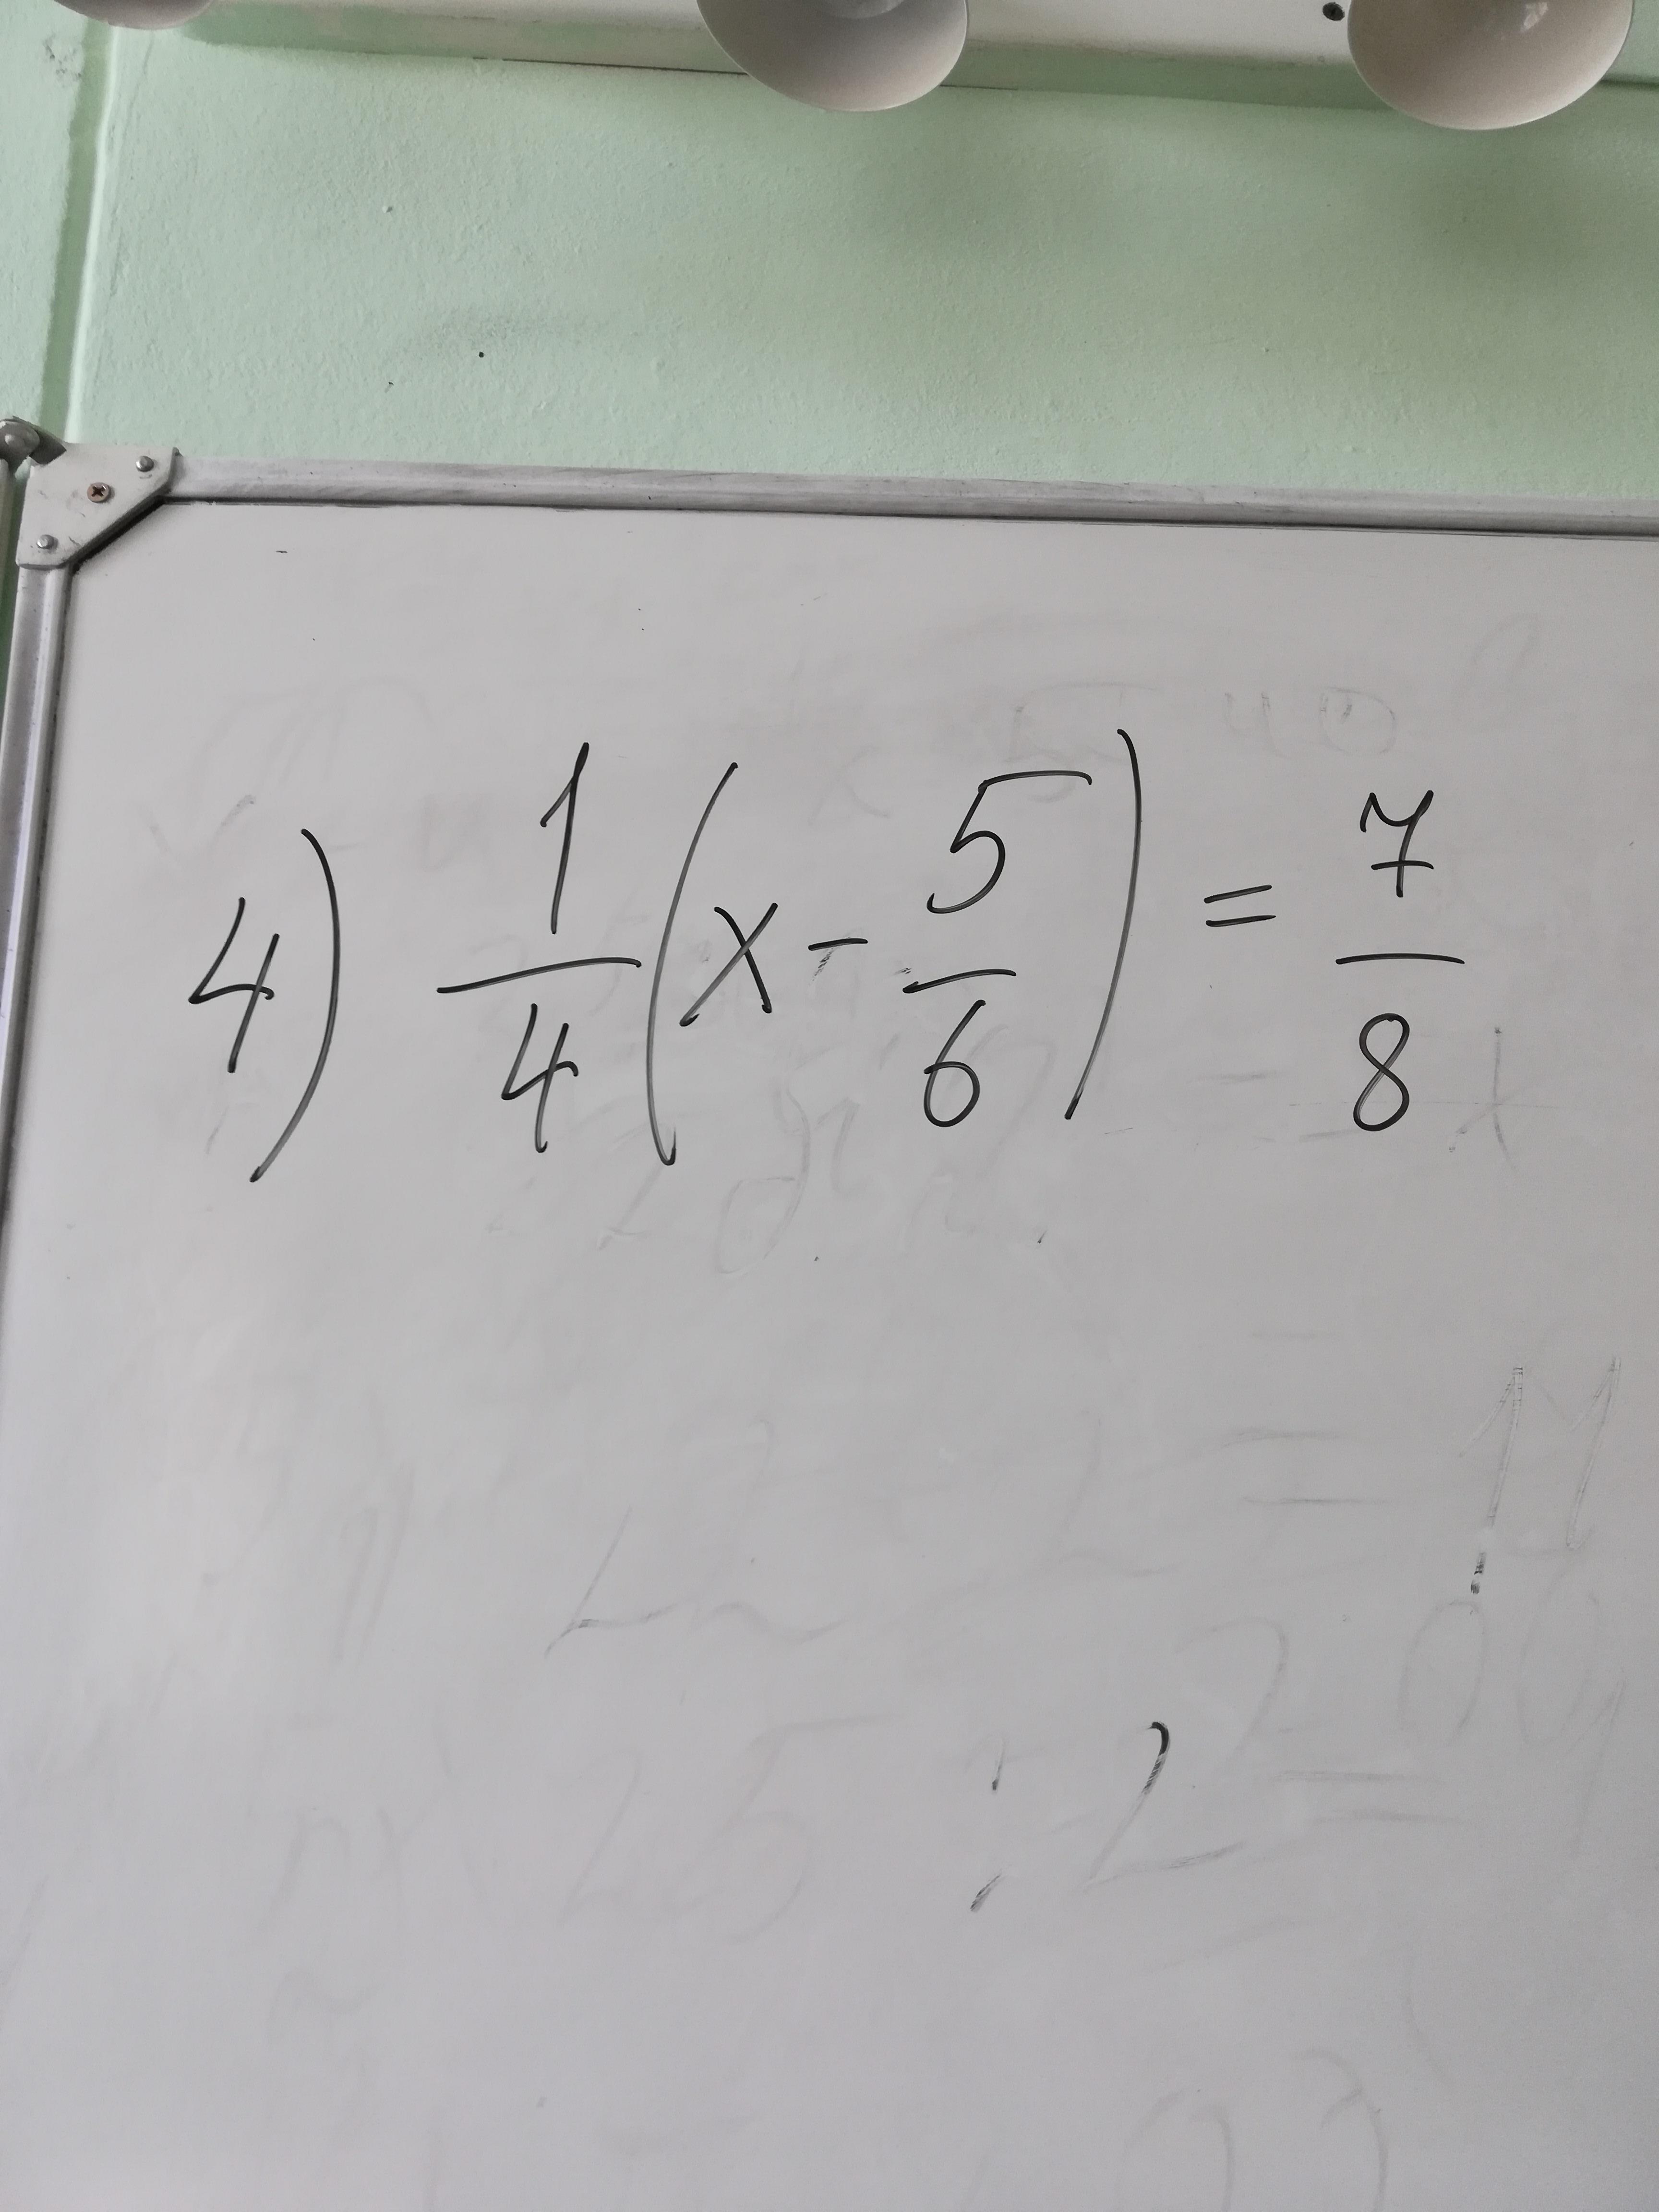 4) 1/4 (x - 5/6) = 7/8